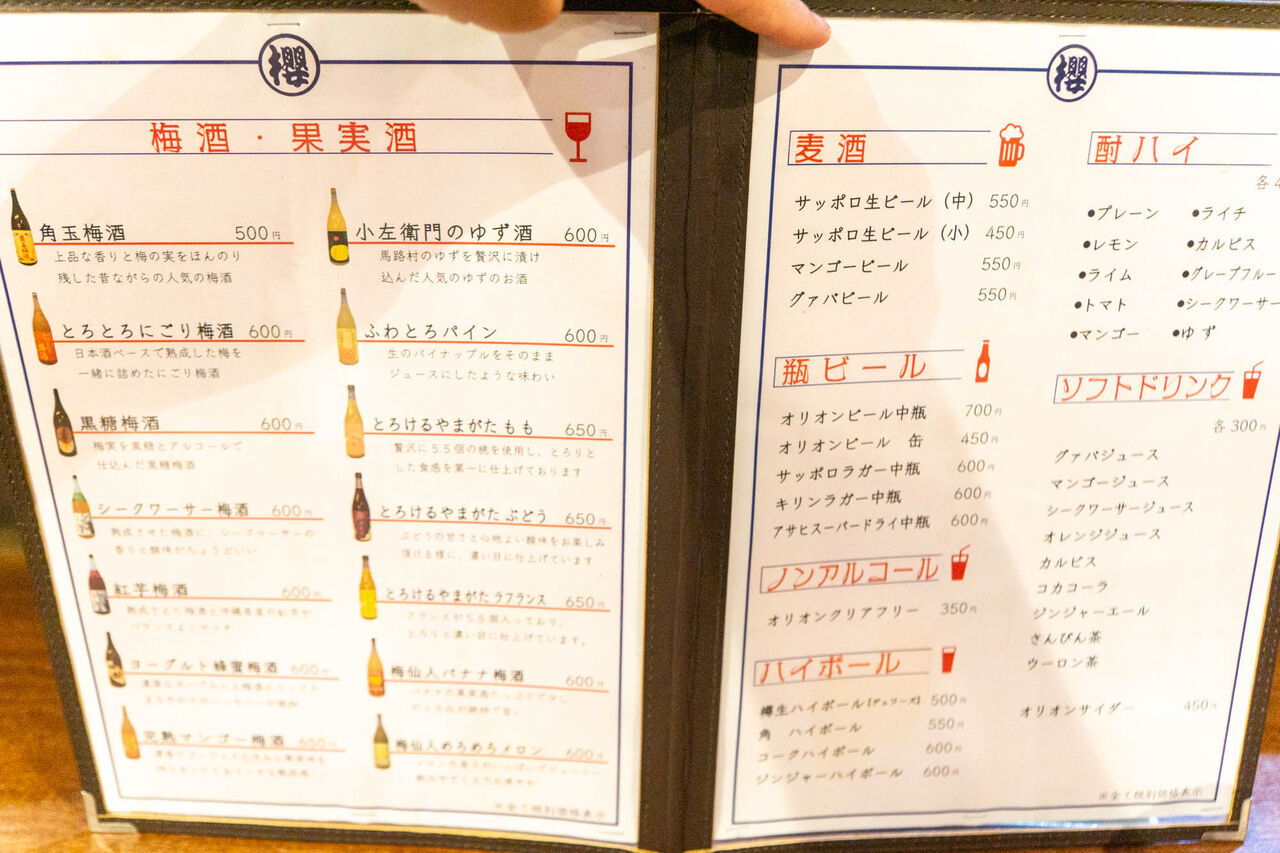 櫻
梅酒・果実酒
角玉梅酒 500円
上品な香りと梅の実をほんのり
残した昔ながらの人気の梅酒
とろとろにごり梅酒 600円
日本酒ベースで熟成した梅を
一緒に詰めたにごり梅酒
黒糖梅酒 600円
梅実を黒糖とアルコールで
仕込んだ黒糖梅酒
シークワーサー梅酒 600円
熟成させた梅酒に、シークワーサーの
香りと酸味がちょうどいい
紅芋梅酒 600円
熟成させた梅酒と沖縄県産の紅芋が
バランスよくマッチ
ヨーグルト蜂蜜梅酒 600円
濃厚なヨーグルトと梅酒とミックス
完熟マンゴー梅酒 650円
小左衛門のゆず酒 600円
馬路村のゆずを贅沢に漬け
込んだ人気のゆずのお酒
ふわとろパイン 600円
生のパイナップルをそのまま
ジュースにしたような味わい
とろけるやまがたもも 650円
贅沢に5.5個の桃を使用し、とろりと
した食感を第一に仕上げております
とろけるやまがたぶどう 650円
ぶどうの甘さと心地よい酸味をお楽しみ
頂ける様に、濃い目に仕上げています
とろけるやまがたラフランス 650円
フランスが5.5個入っており、
とろりと濃い目に仕上げています。
梅仙人バナナ梅酒 600円
梅仙人めろめろメロン 600円
※全て税別価格表示
櫻
麦酒
サッポロ生ビール（中） 550円
サッポロ生ビール（小） 450円
マンゴービール 550円
グァバビール 550円
瓶ビール
オリオンビール中瓶 700円
オリオンビール 缶 450円
サッポロラガー中瓶 600円
キリンラガー中瓶 600円
アサヒスーパードライ中瓶 600円
ノンアルコール
オリオンクリアフリー 350円
ハイボール
樽生ハイボール[デュワーズ] 500円
角 ハイボール 550円
コークハイボール 600円
ジンジャーハイボール 600円
酎ハイ
各4
●プレーン ●ライチ
●レモン ●カルピス
●ライム ●グレープフルー
●トマト ●シークワーサー
●マンゴー ●ゆず
ソフトドリンク
各300円
グァバジュース
マンゴージュース
シークワーサージュース
オレンジジュース
カルピス
コカコーラ
ジンジャーエール
さんぴん茶
ウーロン茶
オリオンサイダー 450円
※全て税別価格表示